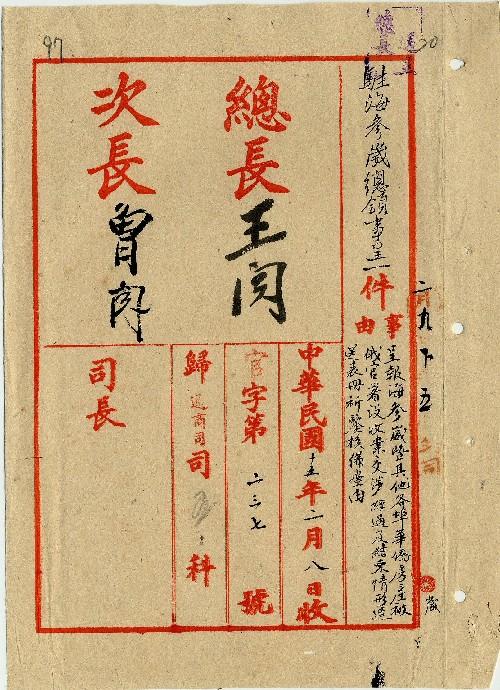 97
30
總長
駐海參崴總領事呈一件
事由
呈報海參崴暨其他各埠華僑房產被
俄官署沒收案交涉經過及結束情形
送表冊祈鑒核備案由
總長 王閱
次長 曾閱
中華民國十五年二月八日收
官字第二三七號
歸通商司司 科
司長
二月九下五